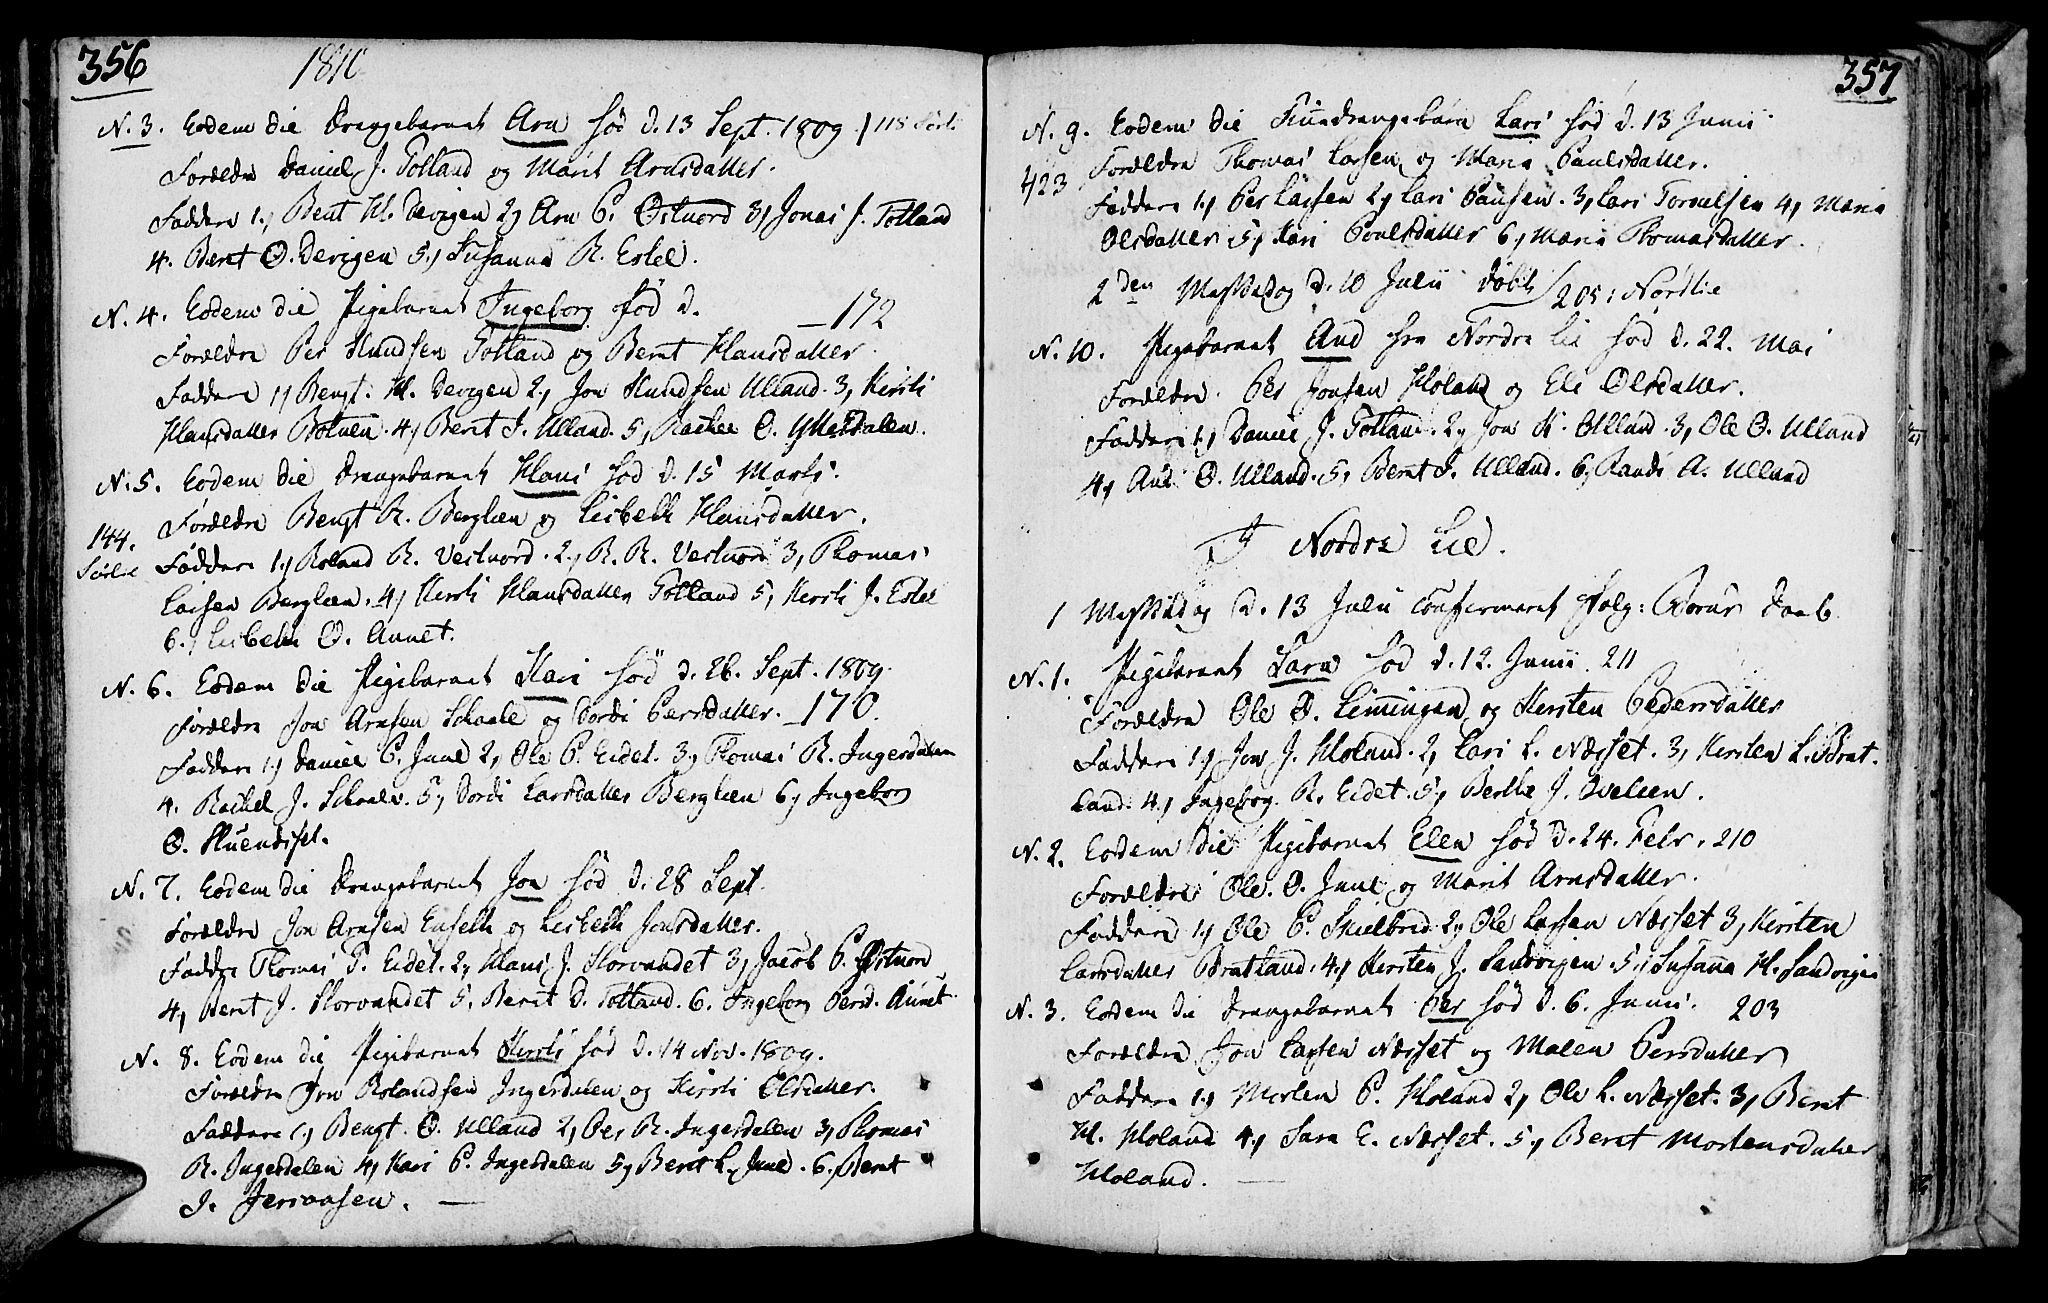 356
1810
N. 3. Eodem die Drengebarnet Arn fød d. 13 Sept. 1809 / 118 Sørli
Forældre Daniel J. Totland og Marit Arnsdatter.
Faddere 1, Bent H. Devigen 2, Arn P. Østnord 3, Jonas J. Totland
4. Beret O. Devigen 5, Susanna R. Estel.
N. 4. Eodem die Pigebarnet Ingeborg fød d. — 172
Forældre Per Knudsen Totland og Beret Hansdatter.
Faddere 1, Bengt H. Devigen 2, Jon Knudsen Ulland. 3, Kersti
Hansdatter Botnen. 4, Berit J. Ulland. 5, Rachel O.
N. 5. Eodem die Drengebarnet Hans fød d. 15 Marti.
144.
Sørlie
Forældre Bengt R. Berglien og Lisbeth Hansdatter.
Faddere 1, Roland R. Vestnord. 2, R. R. Vestnord 3, Thomas
Larsen Berglien. 4, Kersti Hansdatter Totland 5, Kersti J. Estel
6, Lisbeth O. Aunet.
N. 6. Eodem die Pigebarnet Kari fød d. 26. Sept. 1809.
Forældre Jon Arnsen Schaale og Dordi Persdatter. — 170.
Faddere 1, Daniel P. Juul 2, Ole P. Eidet. 3, Thomas R. Ingersdalen
4. Rachel J. Schaale. 5, Dordi Larsdatter Berglien 6, Ingeborg
O.
N. 7. Eodem die Drengebarnet Jon fød d. 28 Sept.
Forældre Jon Arnsen og Lisbeth Jonsdatter.
Faddre Thomas P. Eidet. 2, Hans J. Storvandet 3, Jacob P. Østnord
4, Beret J. Storvandet 5, Berit D. Totland. 6. Ingeborg Persd. Aunet.
N. 8. Eodem die Pigebarnet Kersti fød d. 14 Nov. 1809.
Forældre Jon Rolandsen Ingersdalen og Kersti Olsdatter.
Faddere 1, Bengt O. Ulland 2, Per R. Ingersdalen 3, Thomas
R. Ingersdalen 4, Kari P. Ingersdalen 5, Beret L. Juul. 6. Beret
J.
357
N. 9. Eodem die Drengebarn Lars fød d. 13 Junii
423
Forældre Thomas Larsen og Maria Paulsdatter.
Faddere 1, Per Larsen 2, Lars Paulsen. 3, Lars 4, Maria
Olsdatter 5, Kari Poulsdatter 6, Maria Thomasdatter.
2den Messedag d. 10 Julii døbt / 205: Nordlie
N. 10. Pigebarnet And fra Nordre Lie fød d. 22. Mai
Forældre Per Jonsen Holand og Eli Olsdatter.
Faddere 1, Daniel J. Totland. 2, Jon K. Ulland. 3, Ole O. Ulland
4, And O. Ulland. 5, Beret J. Ulland. 6, Randi A. Ulland
I Nordre Lie.
1 Messedag d. 13 Julii Confirmeret Daab
N. 1. Pigebarnet Sara fød d. 12. Junii. 211
Forældre Ole O. Limingen og Kersten Pedersdatter
Faddere 1, Jon J. Holand. 2, Lars L. Næsset. 3, Kersten L. Brat-
land. 4, Ingeborg R. Eidet. 5, Berthe J.
N. 2. Eodem die Pigebarnet Elen fød d. 24. Febr. 210
Forældre Ole O. Juul og Marit Arnsdatter.
Faddere 1, Ole P. Skielbred 2, Ole Larsen Næsset 3, Kersten
Larsdatter Bratland. 4, Kersten J. Sandvigen. 5, Susanna H. Sandvigen
N. 3. Eodem die Drengebarnet Per fød d. 6. Junii. 203
Forældre Jon Larsen Næsset og Malen Persdatter
Faddere 1, Morten P. Holand 2, Ole L. Næsset. 3, Beret
H. Holand 4, Sara E. Næsset. 5, Beret Mortensdatter
Holand.